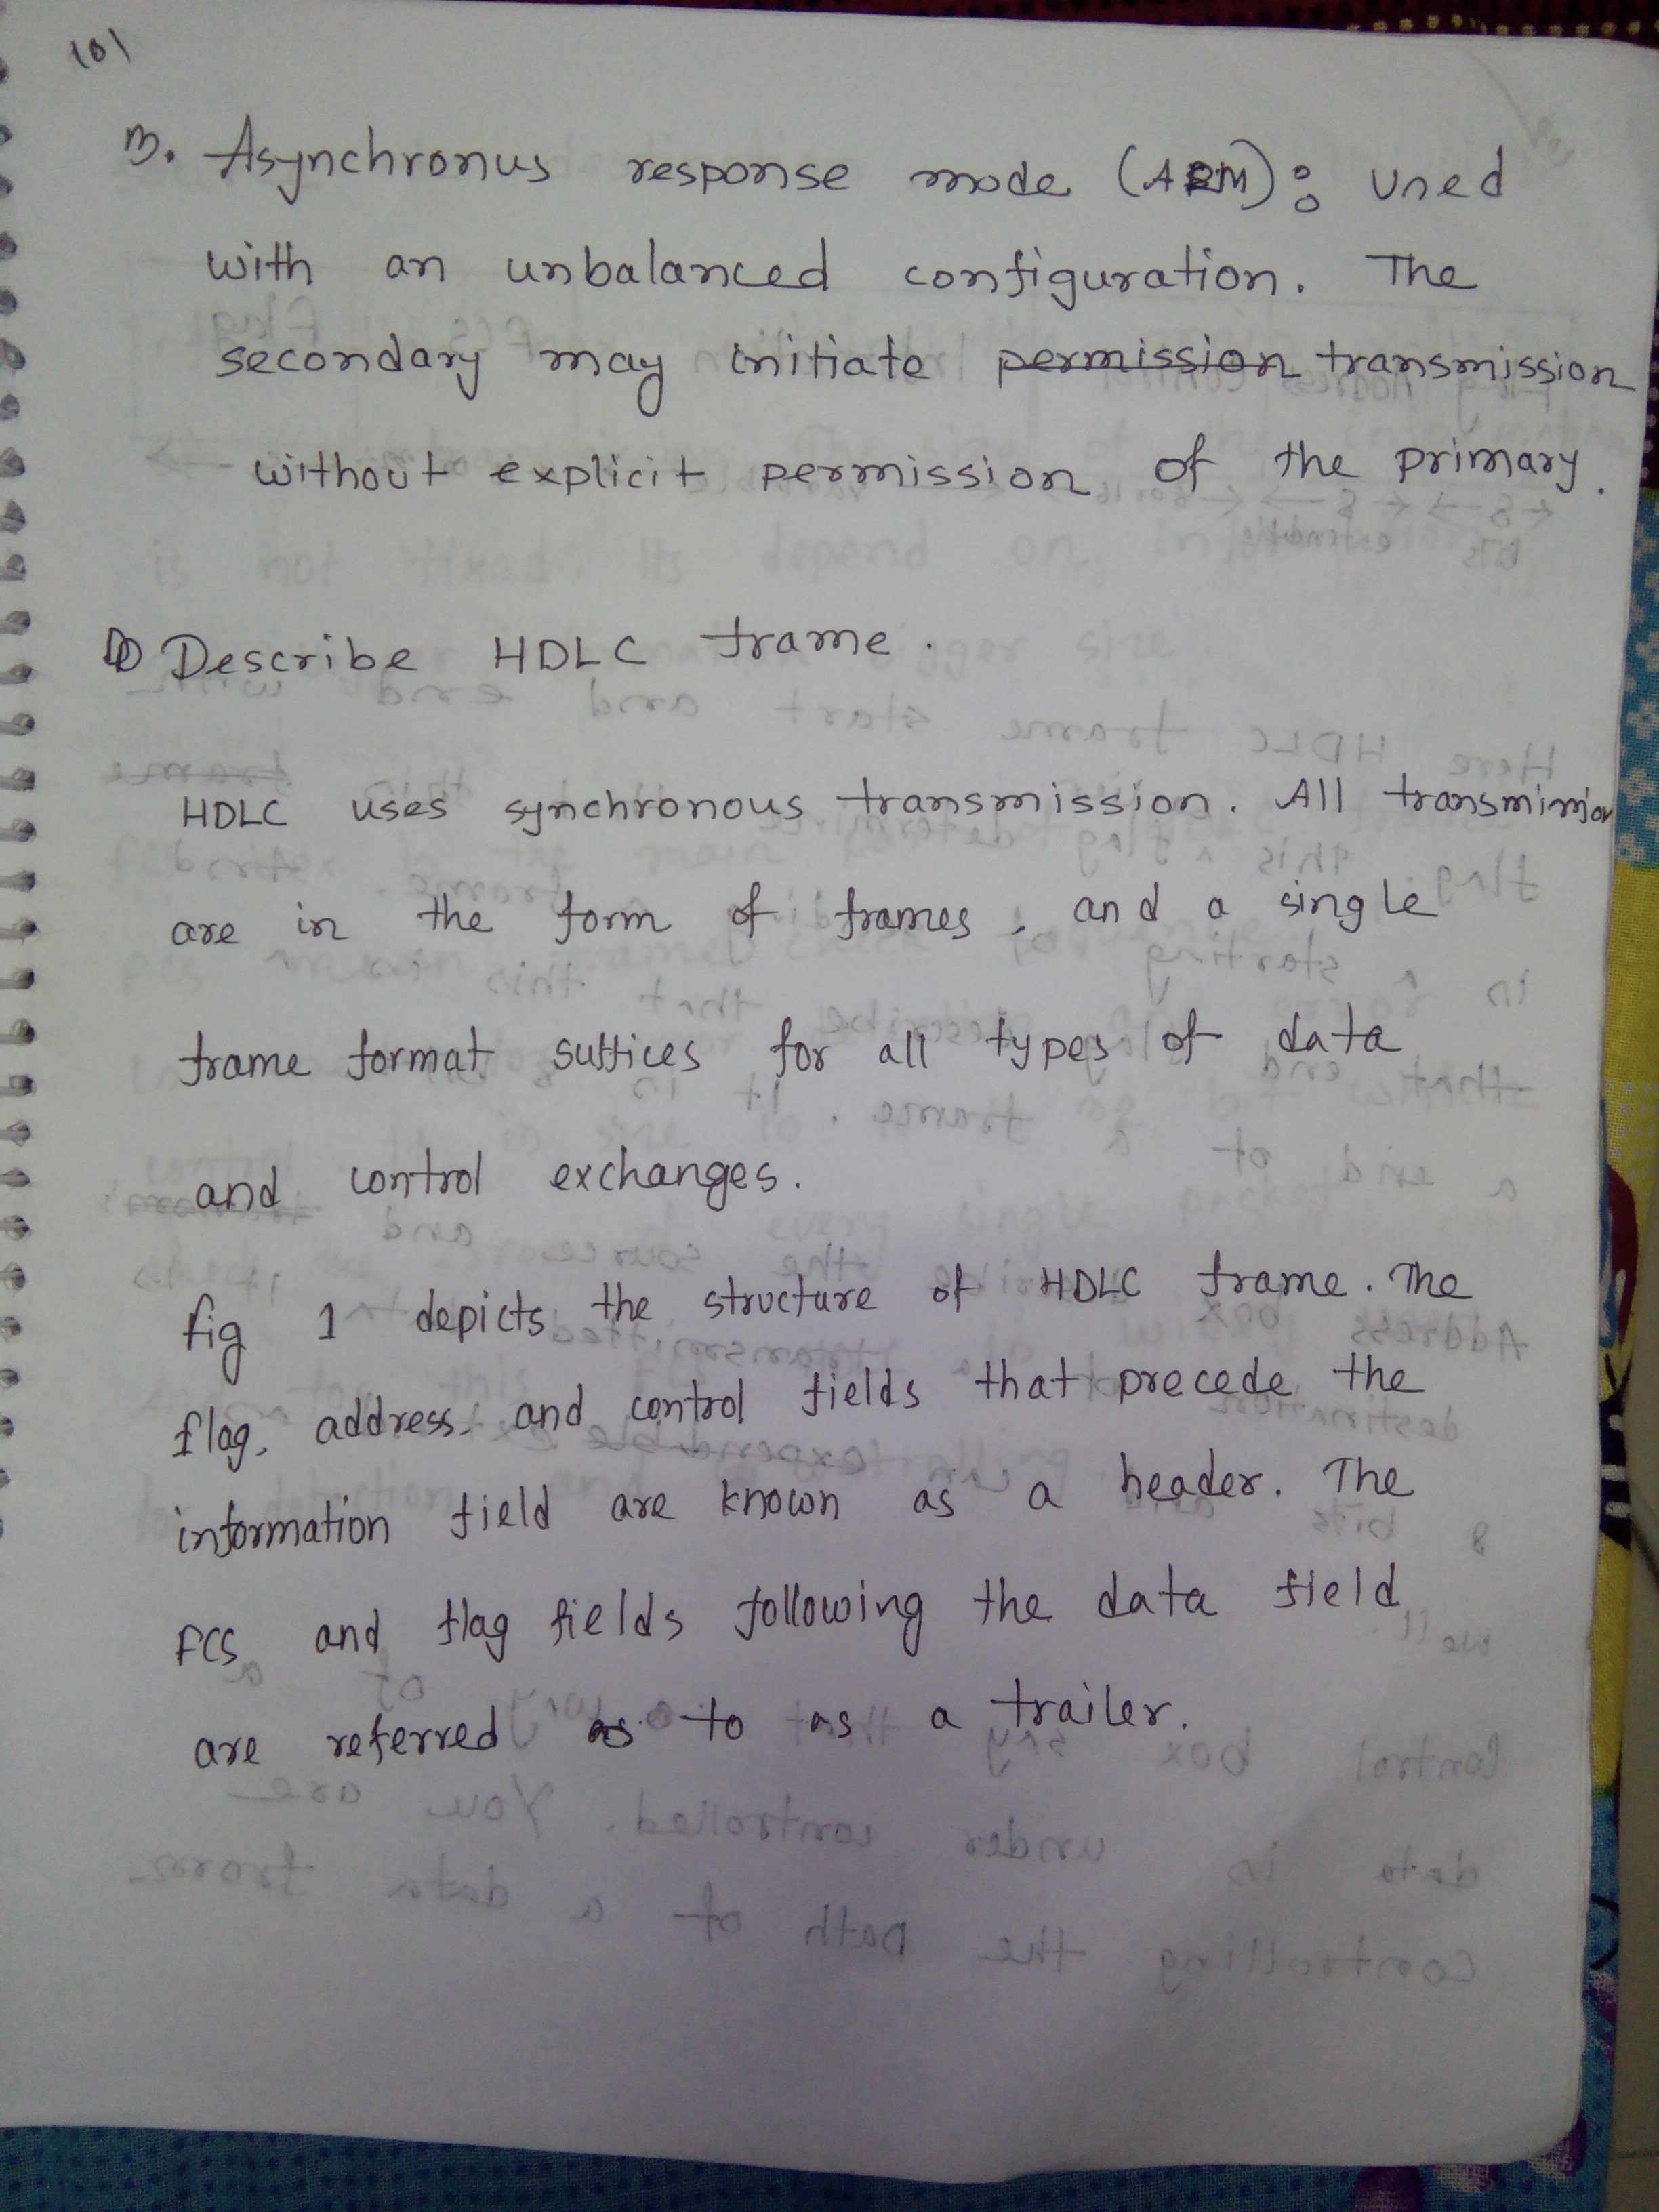 101
3. Asynchronus response mode (ARM): used
with an unbalanced configuration. The
secondary may initiate permission transmission
without explicit permission of the primary.
Describe HDLC frame.
HDLC uses synchronous transmission. All transmission
are in the form of frames, and a single
frame format suffices for all types of data
and control exchanges.
fig 1 depicts the structure of HDLC frame. The
flag, address, and control fields that precede the
information field are known as a header. The
FCS and flag fields following the data field
are referred as to as a trailer.